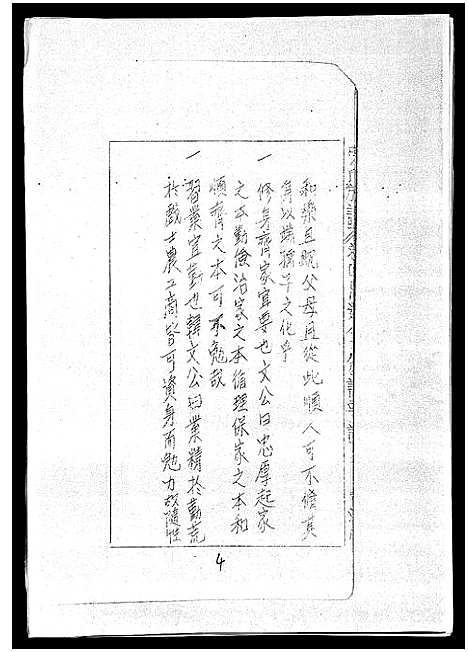 和樂且既父母且從此順人可不脩其
身以端孺子之化乎
一修身齊家宜要也文公曰忠厚起家
之本勤儉治家之本循理保家之本和
順齊之本可不勉哉
一習業宜勤也韓文公曰業精於勤荒
於戲士農工商皆可資身而勉力故隨性
4